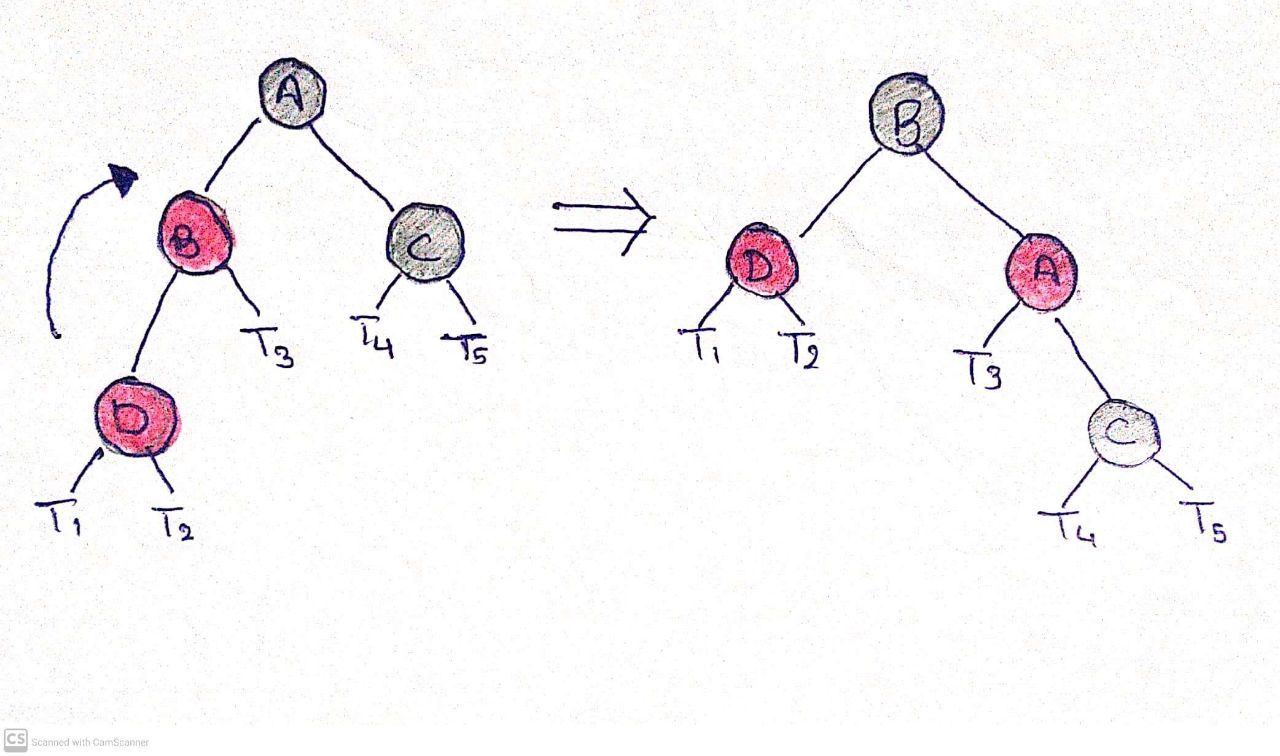 A
B
B
C
D
A
T3
T4
T5
T1
T2
T3
D
C
T1
T2
T4
T5
CS Scanned with CamScanner